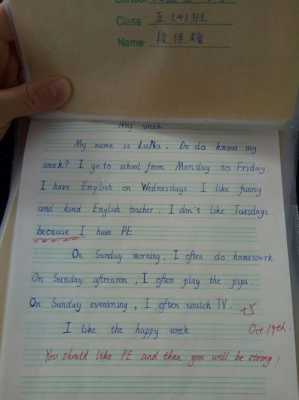 Class 五(4)班
Name
My week
My name is LuNa. Do do know my
week? I go to school from Monday to Friday
I have English on Wednesdays I like funny
and kind English teacher. I don't like Tuesdays
because I have PE
On Sunday morning, I often do homework
On Sunday afternoon, I often play the pipa
On Sunday evening, I often watch TV.
I like the happy week
Oct 19th.
You should like PE and then you will be strong!